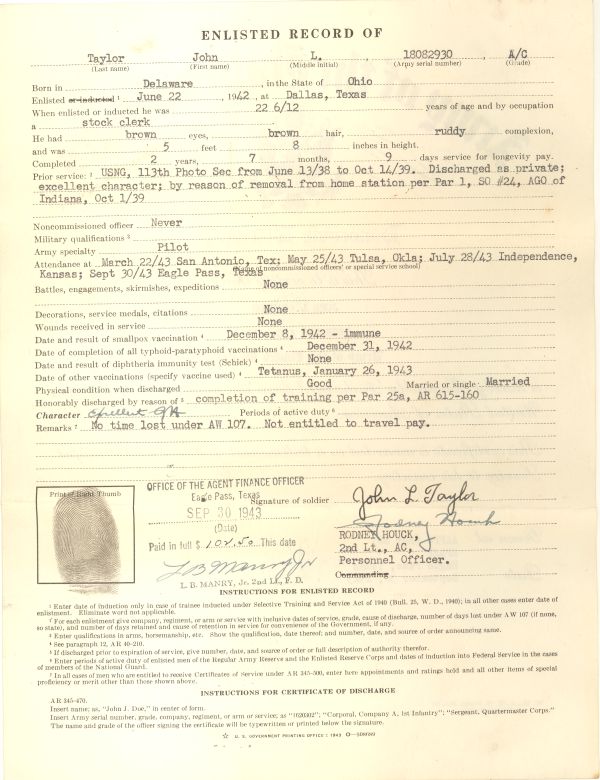 ENLISTED RECORD OF
Taylor John L. , 18082930 , A/C
(Last name) (First name) (Middle initial) (Army serial number) (Grade)
Born in Delaware , in the State of Ohio
Enlisted or inducted 1 June 22 , 1942 , at Dallas, Texas
When enlisted or inducted he was 22 6/12 years of age and by occupation
a stock clerk
He had brown eyes, brown hair, ruddy complexion,
and was 5 feet 8 inches in height.
Completed 2 years, 7 months, 9 days service for longevity pay.
Prior service: 2 USNG, 113th Photo Sec from June 13/38 to Oct 14/39. Discharged as private;
excellent character; by reason of removal from home station per Par 1, SO #24, AGO of
Indiana, Oct 1/39
Noncommissioned officer Never
Military qualifications 3
Army specialty Pilot
Attendance at March 22/43 San Antonio, Tex; May 25/43 Tulsa, Okla; July 28/43 Independence,
(Name of noncommissioned officers' or special service school)
Kansas; Sept 30/43 Eagle Pass, Texas
Battles, engagements, skirmishes, expeditions None
Decorations, service medals, citations None
Wounds received in service None
Date and result of smallpox vaccination 4 December 8, 1942 - immune
Date of completion of all typhoid-paratyphoid vaccinations 4 December 31, 1942
Date and result of diphtheria immunity test (Schick) 4 None
Date of other vaccinations (specify vaccine used) 4 Tetanus, January 26, 1943
Physical condition when discharged Good Married or single Married
Honorably discharged by reason of 5 completion of training per Par 25a, AR 615-160
Character Excellent Periods of active duty 6
Remarks 7 No time lost under AW 107. Not entitled to travel pay.
Print of Right Thumb
OFFICE OF THE AGENT FINANCE OFFICER
Eagle Pass, Texas
Signature of soldier John L Taylor
SEP 30 1943
(Date)
Rodney Houck
Paid in full $ 102.50 This date
RODNEY HOUCK,
2nd Lt., AC,
Personnel Officer.
Commanding
L B Manry Jr
L. B. MANRY, Jr. 2nd Lt., F. D.
INSTRUCTIONS FOR ENLISTED RECORD
1 Enter date of induction only in case of trainee inducted under Selective Training and Service Act of 1940 (Bull. 25, W. D., 1940); in all other cases enter date of
enlistment. Eliminate word not applicable.
2 For each enlistment give company, regiment, or arm or service with inclusive dates of service, grade, cause of discharge, number of days lost under AW 107 (if none,
so state), and number of days retained and cause of retention in service for convenience of the Government, if any.
3 Enter qualifications in arms, horsemanship, etc. Show the qualification, date thereof; and number, date, and source of order announcing same.
4 See paragraph 12, AR 40-210.
5 If discharged prior to expiration of service, give number, date, and source of order or full description of authority therefor.
6 Enter periods of active duty of enlisted men of the Regular Army Reserve and the Enlisted Reserve Corps and dates of induction into Federal Service in the cases
of members of the National Guard.
7 In all cases of men who are entitled to receive Certificates of Service under AR 345-500, enter here appointments and ratings held and all other items of special
proficiency or merit other than those shown above.
INSTRUCTIONS FOR CERTIFICATE OF DISCHARGE
AR 345-470.
Insert name; as, "John J. Doe," in center of form.
Insert Army serial number, grade, company, regiment, or arm or service; as "1620302"; "Corporal, Company A, 1st Infantry"; "Sergeant, Quartermaster Corps."
The name and grade of the officer signing the certificate will be typewritten or printed below the signature.
☆ U. S. GOVERNMENT PRINTING OFFICE : 1943